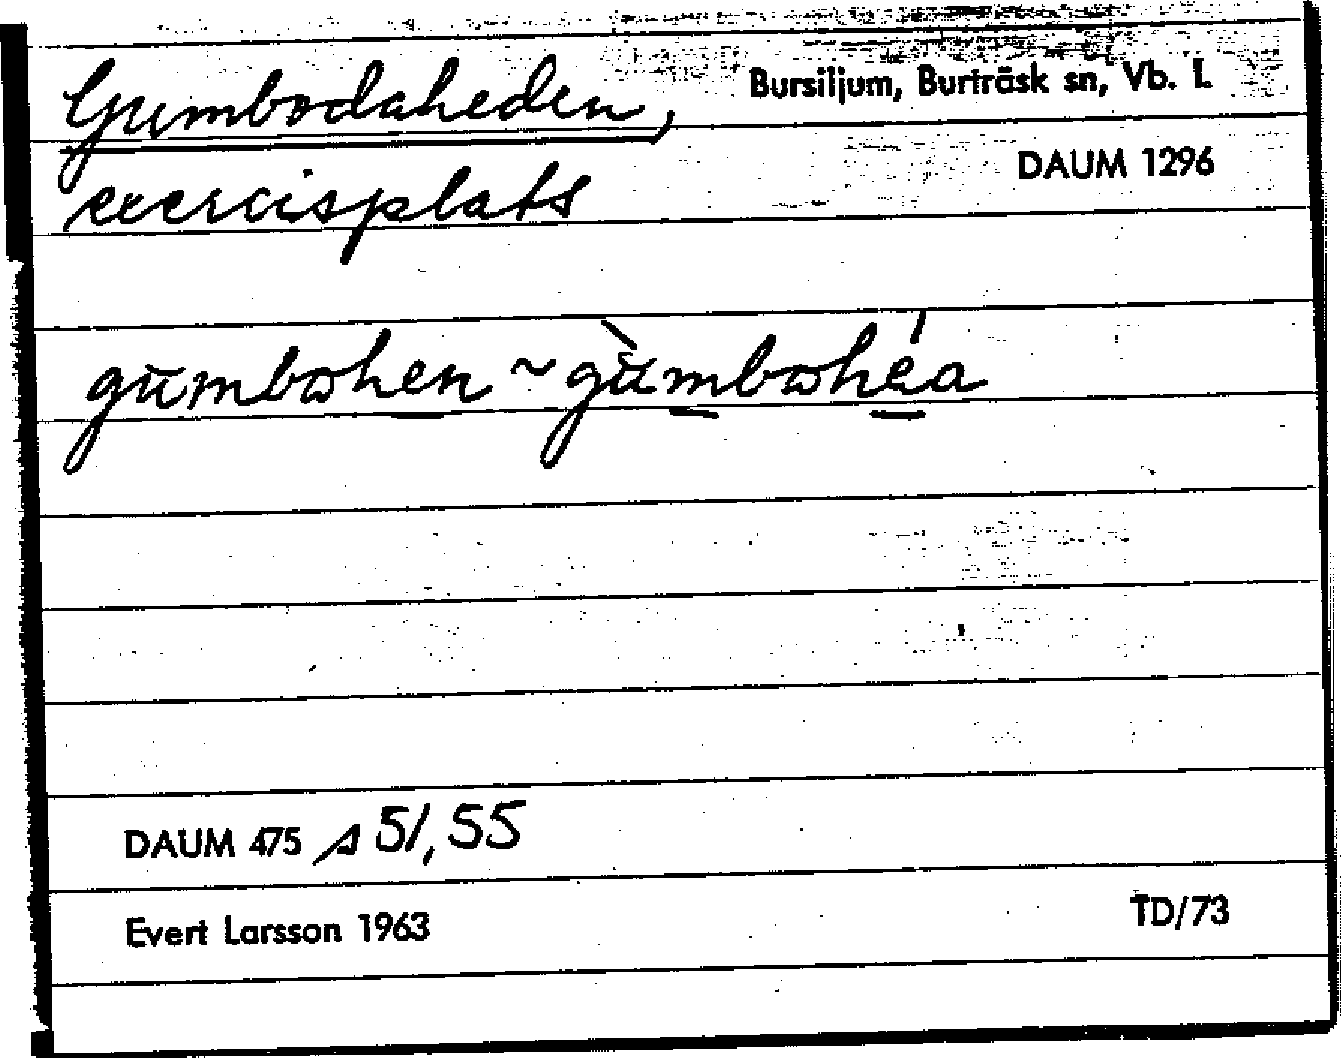 Gumbodaheden, Bursiljum, Burträsk sn, Vb. l.
exercisplats DAUM 1296
gūmbωhen ~ gùmbωhéa
DAUM 475 s 51, 55
Evert Larsson 1963 TD/73